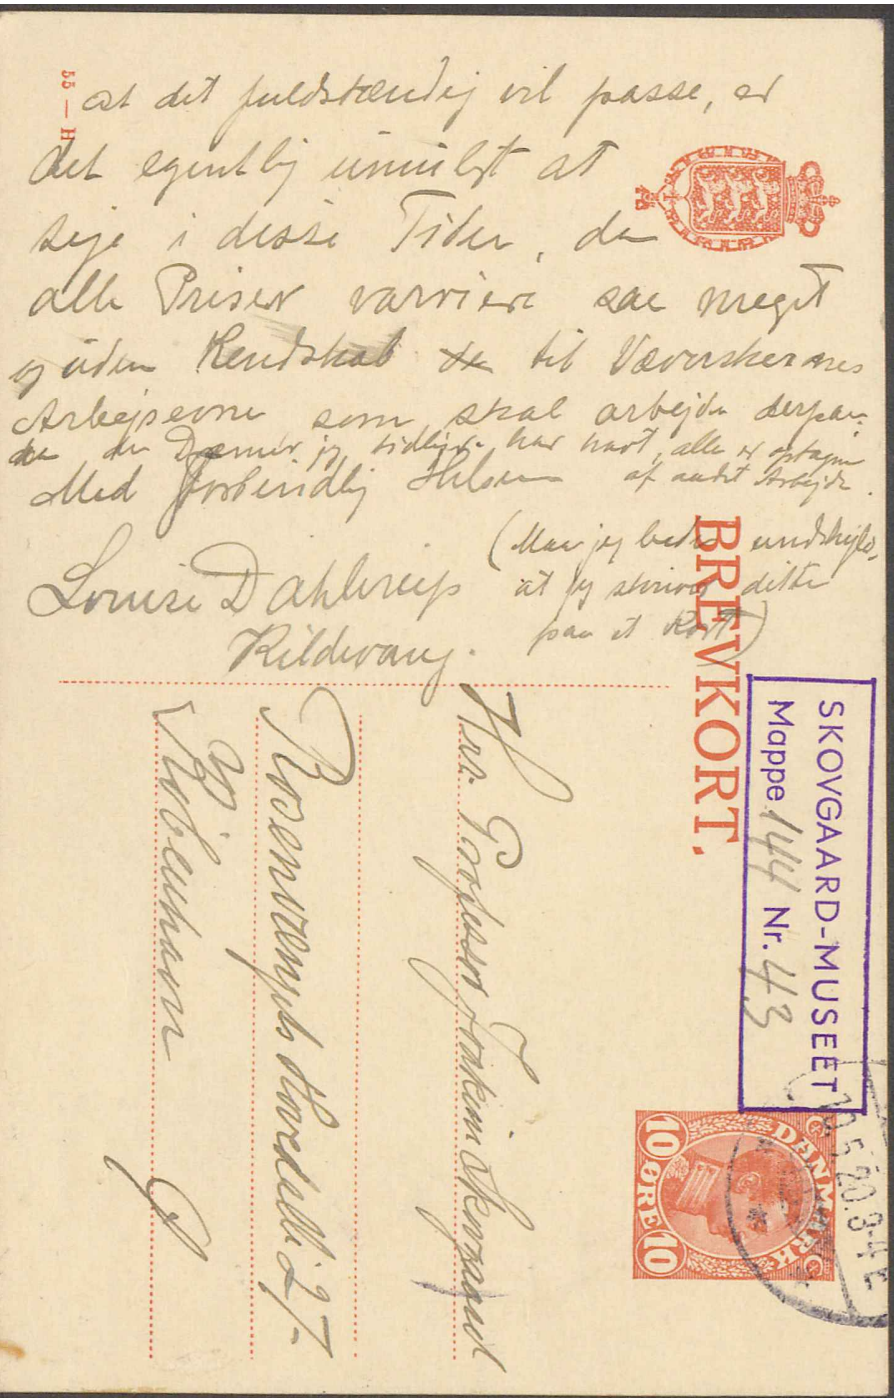 55 — H
at det fuldstændig vil passe, er
det egentlig umuligt at
sige i disse Tider, da
alle Priser varriere saa meget
og uden Kendskab til Væverskernes
Arbejdsevne som skal arbejde derpaa
da de Damer jeg tidligere har havt, alle er optagne
af andet Arbejde.
Med forbindlig Hilsen
Louise Dahlerup
Kildevang.
(Maa jeg bede undskylde,
at jeg skriver dette
paa et Kort)
BREVKORT.
SKOVGAARD-MUSEET
Mappe 144 Nr. 43
Hrr. Professor Joakim Skovgaard
Rosenvængets Hovedallé 27-
København
Ø
DANMARK
10 ØRE 10
19.5.20.3-4 E